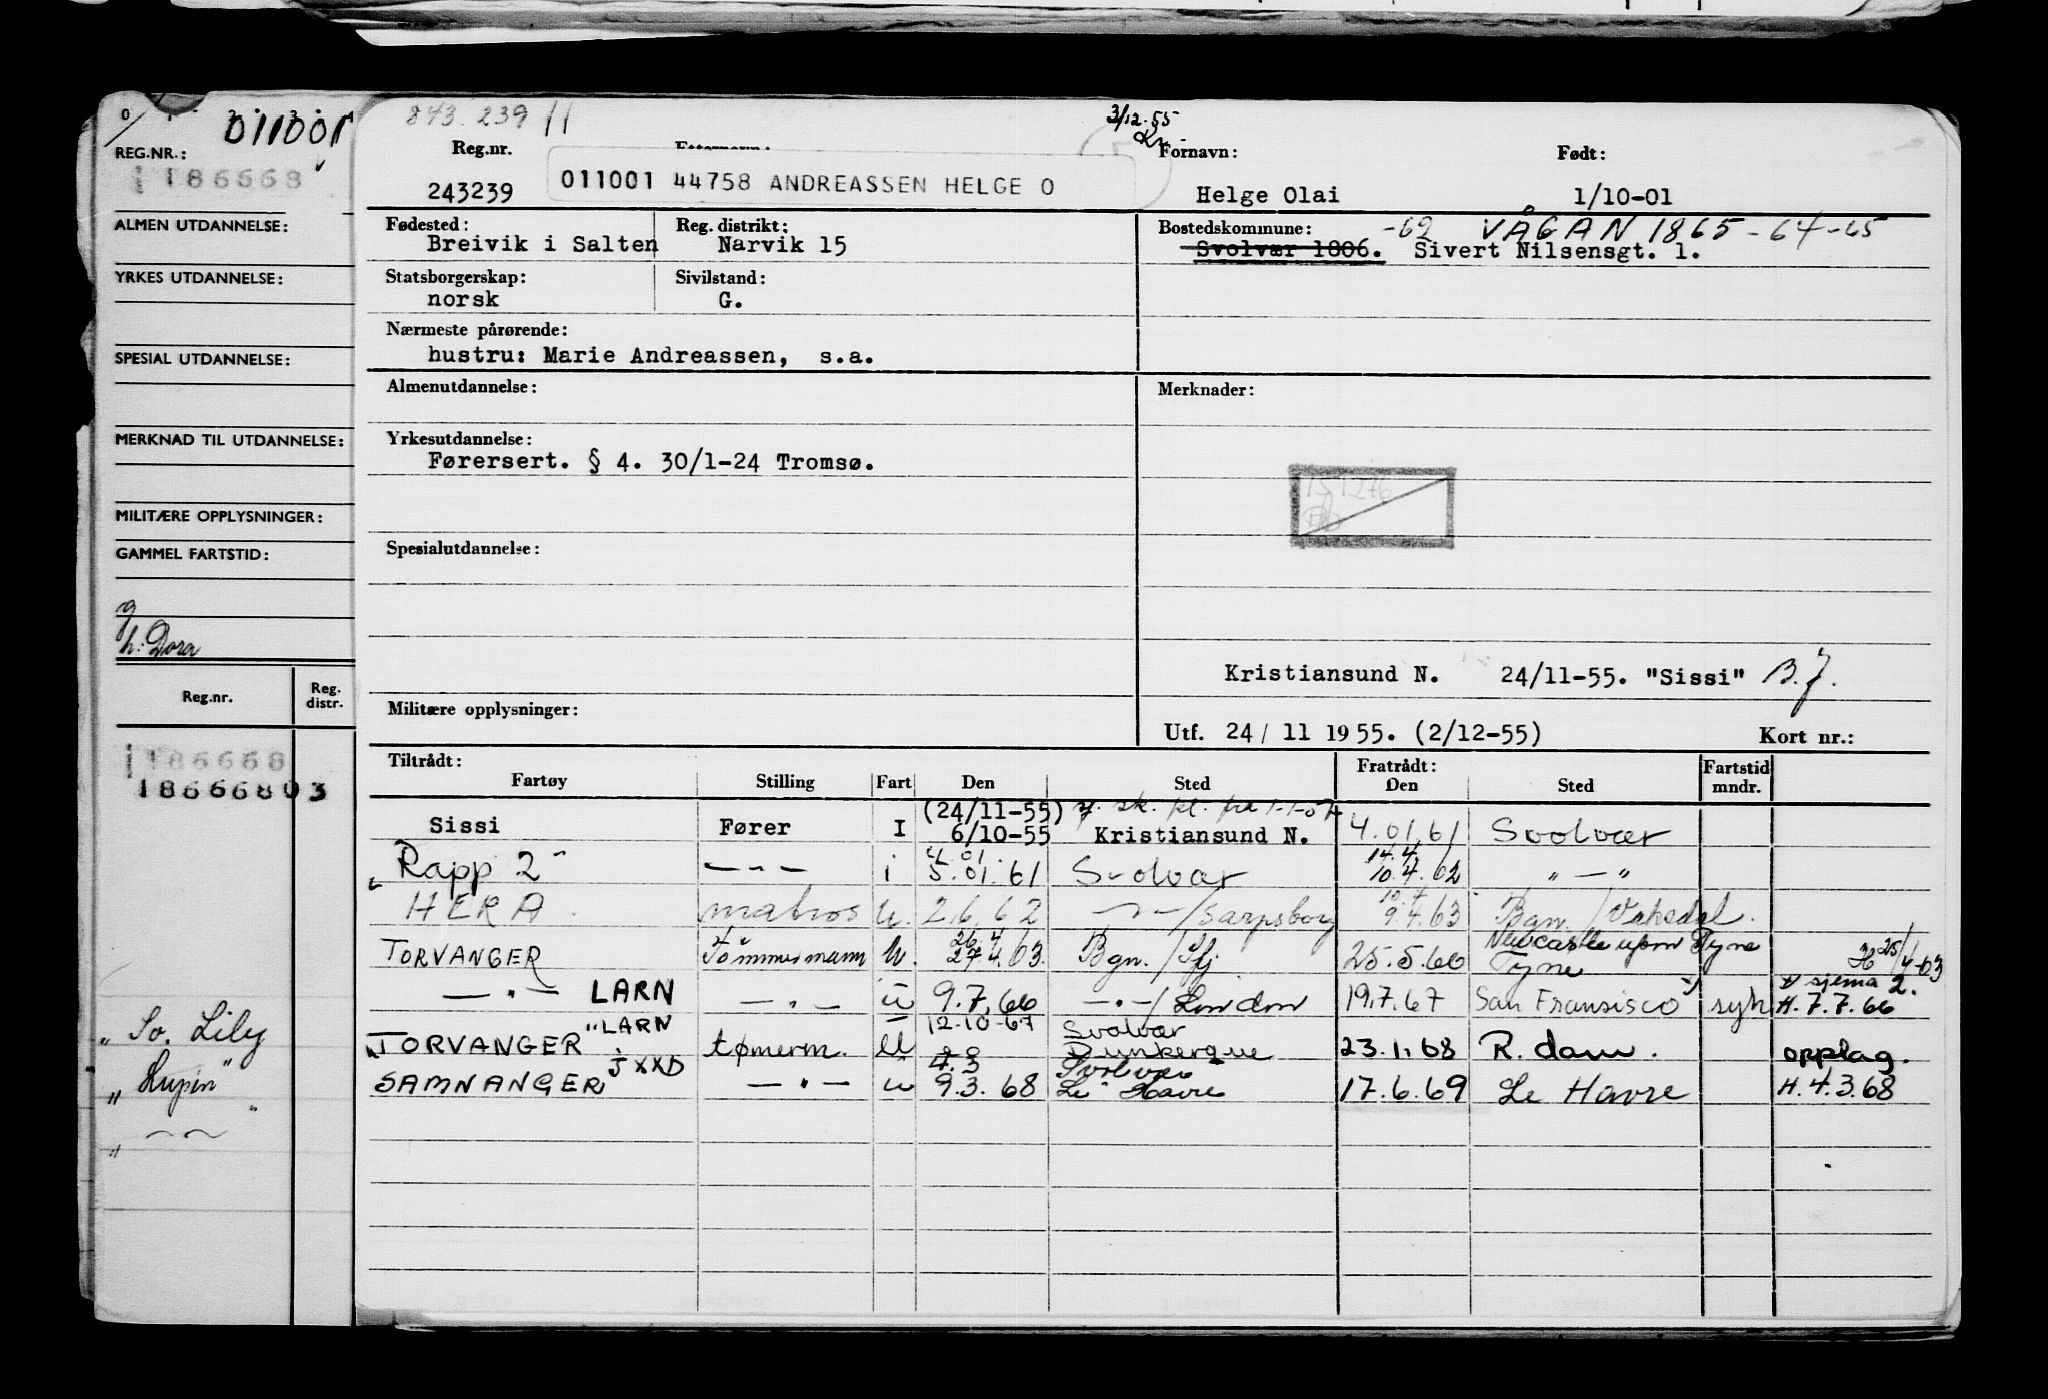 011001
REG.NR.:
186668
ALMEN UTDANNELSE:
YRKES UTDANNELSE:
SPESIAL UTDANNELSE:
MERKNAD TIL UTDANNELSE:
MILITÆRE OPPLYSNINGER:
GAMMEL FARTSTID:
g
h: Dora
Reg.nr. Reg. distr.
186668
18666803
"So. Lily
"Lupin"
" — "
843.239 11
3/12.55
Reg.nr. Etternavn: Fornavn: Født:
243239 011001 44758 ANDREASSEN HELGE O Helge Olai 1/10-01
Fødested: Reg. distrikt: Bostedskommune: -62 VÅGAN 1865 -64-65
Breivik i Salten Narvik 15 Svolvær 1806. Sivert Nilsensgt. 1.
Statsborgerskap: Sivilstand:
norsk G.
Nærmeste pårørende:
hustru: Marie Andreassen, s.a.
Almenutdannelse: Merknader:
Yrkesutdannelse:
Førersert. § 4. 30/1-24 Tromsø.
151276
Spesialutdannelse:
Kristiansund N. 24/11-55. "Sissi" B.J.
Militære opplysninger:
Utf. 24/ 11 1955. (2/12-55) Kort nr.:
Tiltrådt: Fratrådt: Fartstid
Fartøy Stilling Fart Den Sted Den Sted mndr.
(24/11-55)
Sissi Fører I 6/10-55 Kristiansund N. 4.01.61 Svolvær
4.01. 14.4.
"Rapp 2" — " — i 5.01.61 Svolvær 10.4.62 " — "
10.4
HERA matros U. 2.6.62 — " — /Sarpsborg 9.4.63 Bgn./Vaksdal.
26.4 Newcastle upon Tyne
TORVANGER Tømmermann U. 27.4.63. Bgn./Sfj. 25.5.66 Tyne H 25/4-63
sjema 2.
— " — LARN — " — U 9.7.66 — " — /London 19.7.67 San Fransisco syk H.7.7.66
"LARN 12.10-67 Svolvær
TORVANGER tømerm. U Dunkerque 23.1.68 R.dam. opplag.
JXXD 4.3 Svolvær
SAMNANGER — " — u 9.3.68 Le Havre 17.6.69 Le Havre H.4.3.68